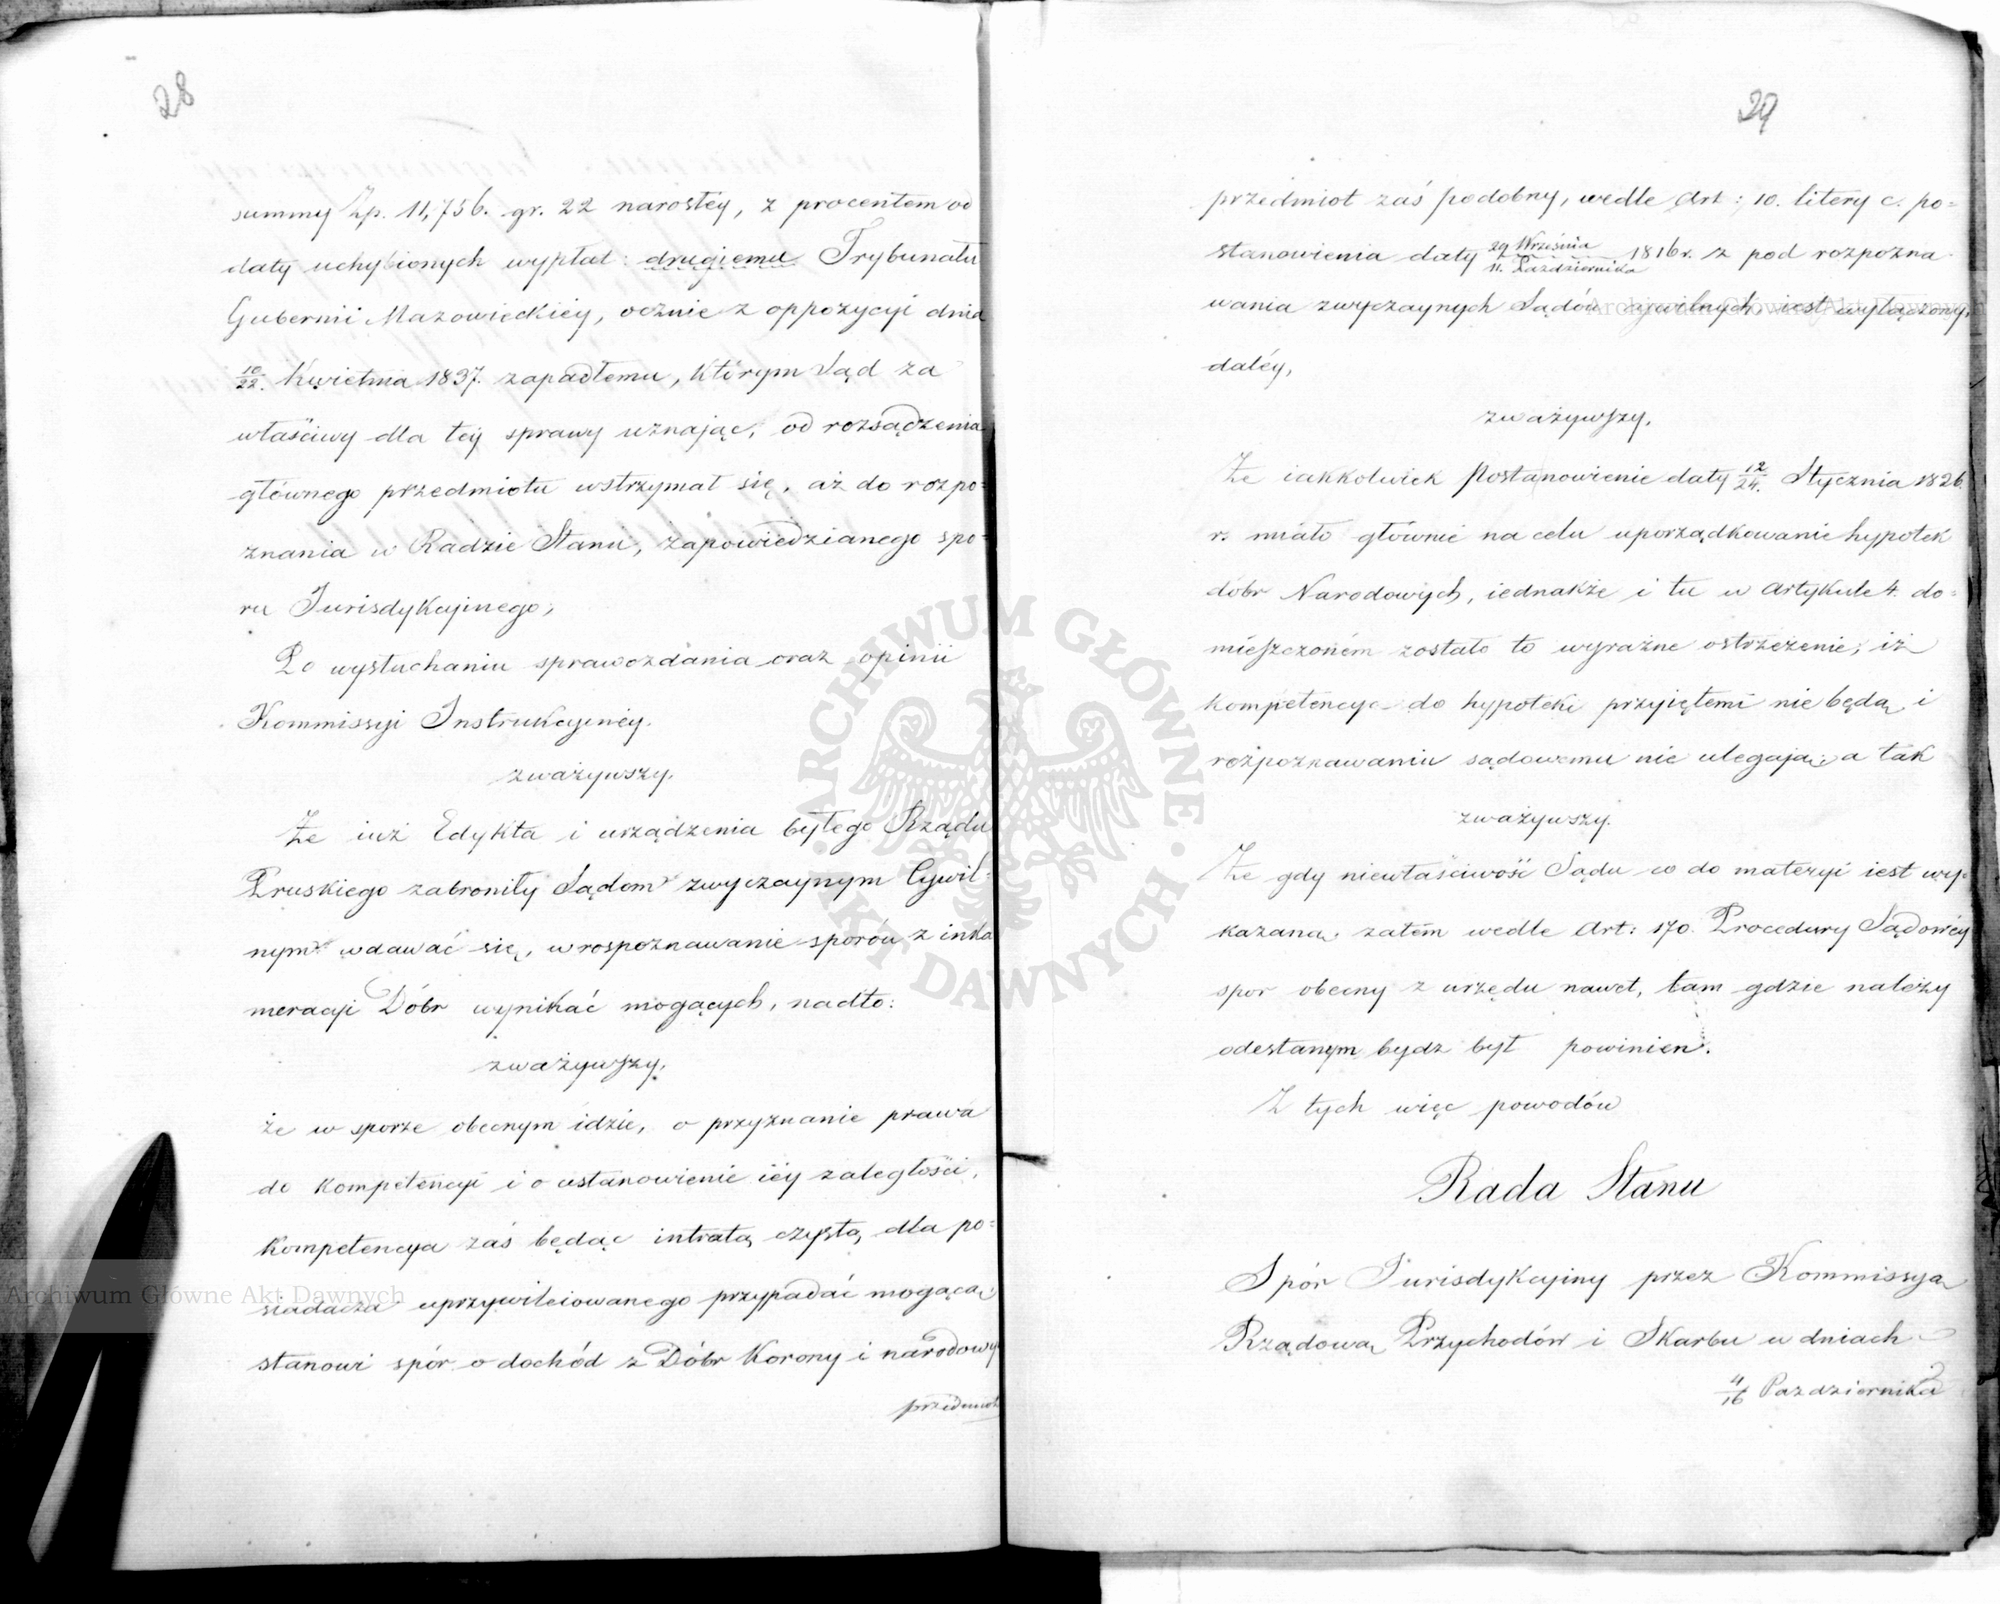 28
summy Zp. 11,756. gr. 22 narosłéy, z procentem od
daty uchybionych wypłat: drugiemu Trybunału
Gubernii Mazowieckiéy, ocznie z oppozycyi dnia
10/22. Kwietnia 1837. zapadłemu, którym Sąd za
właściwy dla téy sprawy uznając, od rozsądzenia
głównego przedmiotu wstrzymał się, aż do rozpo=
znania w Radzie Stanu, zapowiedzianego spo=
ru Jurisdykcyinego;
Po wysłuchaniu sprawozdania oraz opinii
Kommissyi Instrukcyinéy.
zważywszy.
Że iuż Edykta i urządzenia byłego Rządu
Pruskiego zabroniły Sądom zwyczaynym Cywil=
nym wdawać się, w rospoznawanie sporów z inka
meracyi Dóbr wynikać mogących, nadto:
zważywszy,
że w sporze obecnym idzie, o przyznanie prawa
do kompetencyi i o ustanowienie iéy zaległości,
Kompetencya zaś będąc intratą czystą dla po=
siadacza uprzywileiowanego przypadać mogącą,
stanowi spór o dochód z Dóbr Korony i narodowy
przedmiot
29
przedmiot zaś podobny, wedle Art: 10. litery c. po=
stanowienia daty 29 Września / 11. Października 1816 r. z pod rozpozna
wania zwyczaynych Sądów cywilnych, iest wyłączony,
daléy,
zważywszy,
Że iakkolwiek Postanowienie daty 12/24. Stycznia 1826.
r. miało głównie na celu uporządkowanie hypotek
dóbr Narodowych, iednakże i tu w Artykule 4. do=
mieszczoném zostało to wyraźne ostrzeżenie, iż
kompetencye do hypoteki przyiętemi nie będą i
rozpoznawaniu sądowemu nie ulegają; a tak
zważywszy.
Że gdy niewłaściwość Sądu co do materyi iest wy=
kazaną, zatém wedle Art: 170. Procedury Sądowéy
spor obecny z urzędu nawet, tam gdzie należy
odesłanym bydz był powinien.
Z tych więc powodów
Rada Stanu
Spór Jurisdykcyiny przez Kommissyą
Rządową Przychodów i Skarbu w dniach
4/16 Pazdziernika
ARCHIWUM GŁÓWNE AKT DAWNYCH
Archiwum Główne Akt Dawnych
Archiwum Główne Akt Dawnych